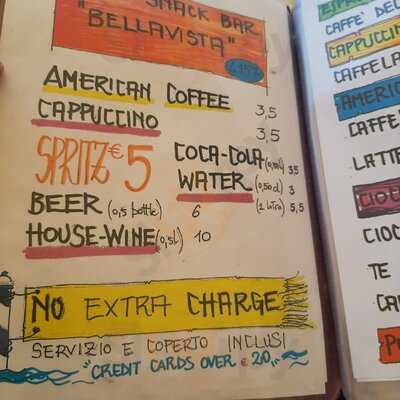 SNACK BAR
"BELLAVISTA"
AMERICAN COFFEE 3,5
CAPPUCCINO 3,5
SPRITZ € 5
COCA-COLA 3,5
WATER (0,50 cl) 3
(1 litro) 5,5
BEER (0,5 bottle) 6
HOUSE-WINE (0,5L) 10
NO EXTRA CHARGE
SERVIZIO E COPERTO INCLUSI
"CREDIT CARDS OVER € 20"
CAFFÈ
CAPPUCCIN
CAFFELA
AMERIC
CAFFE
LATTE
CIOC
TE